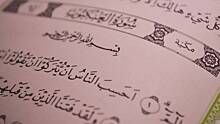 كُلُّ شَيْءٍ هَالِكٌ
سُورَةُ العَنكَبُوتِ
مكية
بِسْمِ اللَّهِ الرَّحْمَٰنِ الرَّحِيمِ
الٓمٓ ١ أَحَسِبَ النَّاسُ أَن يُتْرَكُوا أَن
وَلَقَدْ فَتَنَّا الَّذِينَ مِن قَبْلِهِمْ